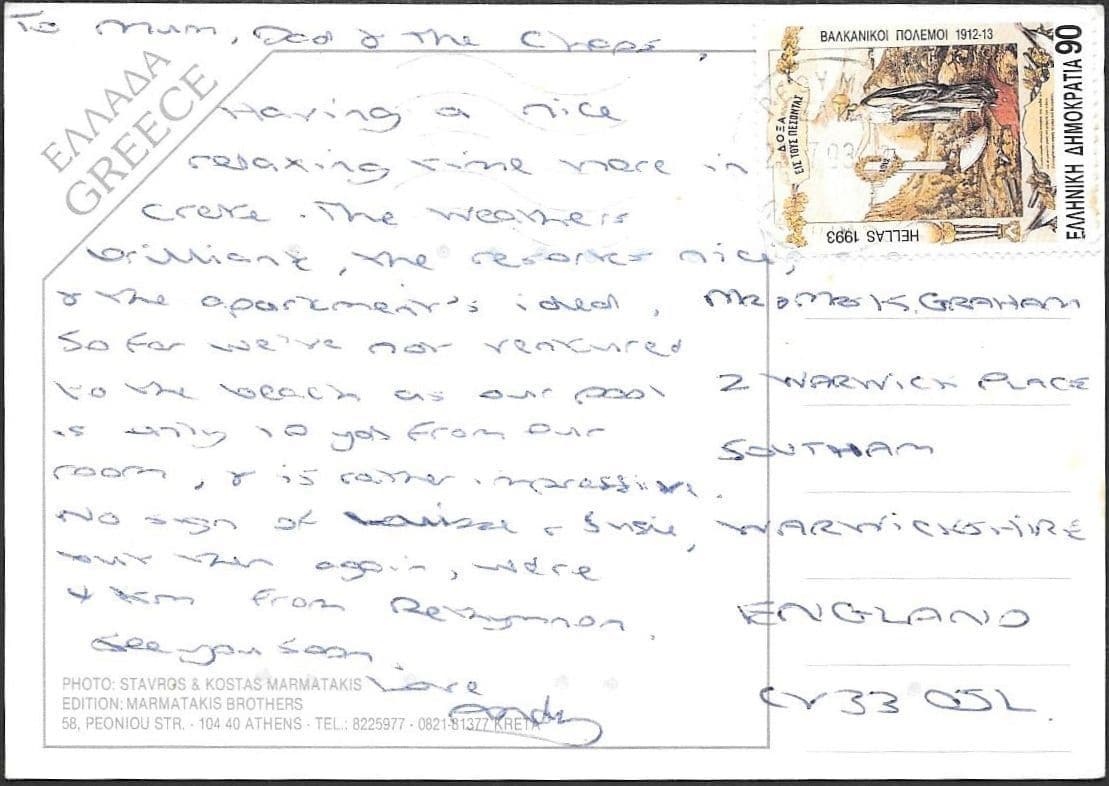 To Mum, Dad & The Chaps,
ΕΛΛΑΔΑ
GREECE
Having a nice
relaxing time here in
Crete. The weathers
brilliant, the resorts nice,
& the apartment's ideal,
So far we've not ventured
to the beach as our pool
is only 10 yds from our
room, & is rather impressive.
No sign of Louise & Susie,
but then again, we're
4 km from Rethymnon.
See you soon.
Love
Andy
PHOTO: STAVROS & KOSTAS MARMATAKIS
EDITION: MARMATAKIS BROTHERS
58, PEONIOU STR. - 104 40 ATHENS - TEL.: 8225977 - 0821-81377 KRETA
ΒΑΛΚΑΝΙΚΟΙ ΠΟΛΕΜΟΙ 1912-13
ΔΟΞΑ
ΕΙΣ ΤΟΥΣ ΠΕΣΟΝΤΑΣ
HELLAS 1993
ΕΛΛΗΝΙΚΗ ΔΗΜΟΚΡΑΤΙΑ 90
MR & MRS K. GRAHAM
2 WARWICK PLACE
SOUTHAM
WARWICKSHIRE
ENGLAND
CV33 0JL.